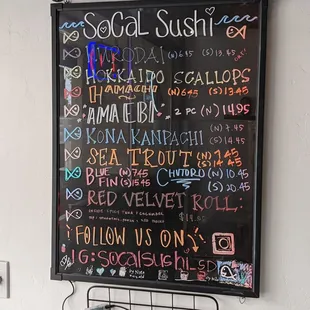 SoCal Sushi
KURODAI (N) 6.45 (S) 13.45
HOKKAIDO SCALLOPS
HAMACHI (N) 6.45 (S) 13.45
AMAEBI 2 PC (N) 14.95
KONA KANPACHI (N) 7.45
(S) 14.45
SEA TROUT (N) 7.45
(S) 14.45
BLUE FIN (N) 7.45 (S) 15.45
CHUTORO (N) 10.45
(S) 20.45
RED VELVET ROLL:
$19.50
FOLLOW US ON
IG: SOCALSUSHI_SD